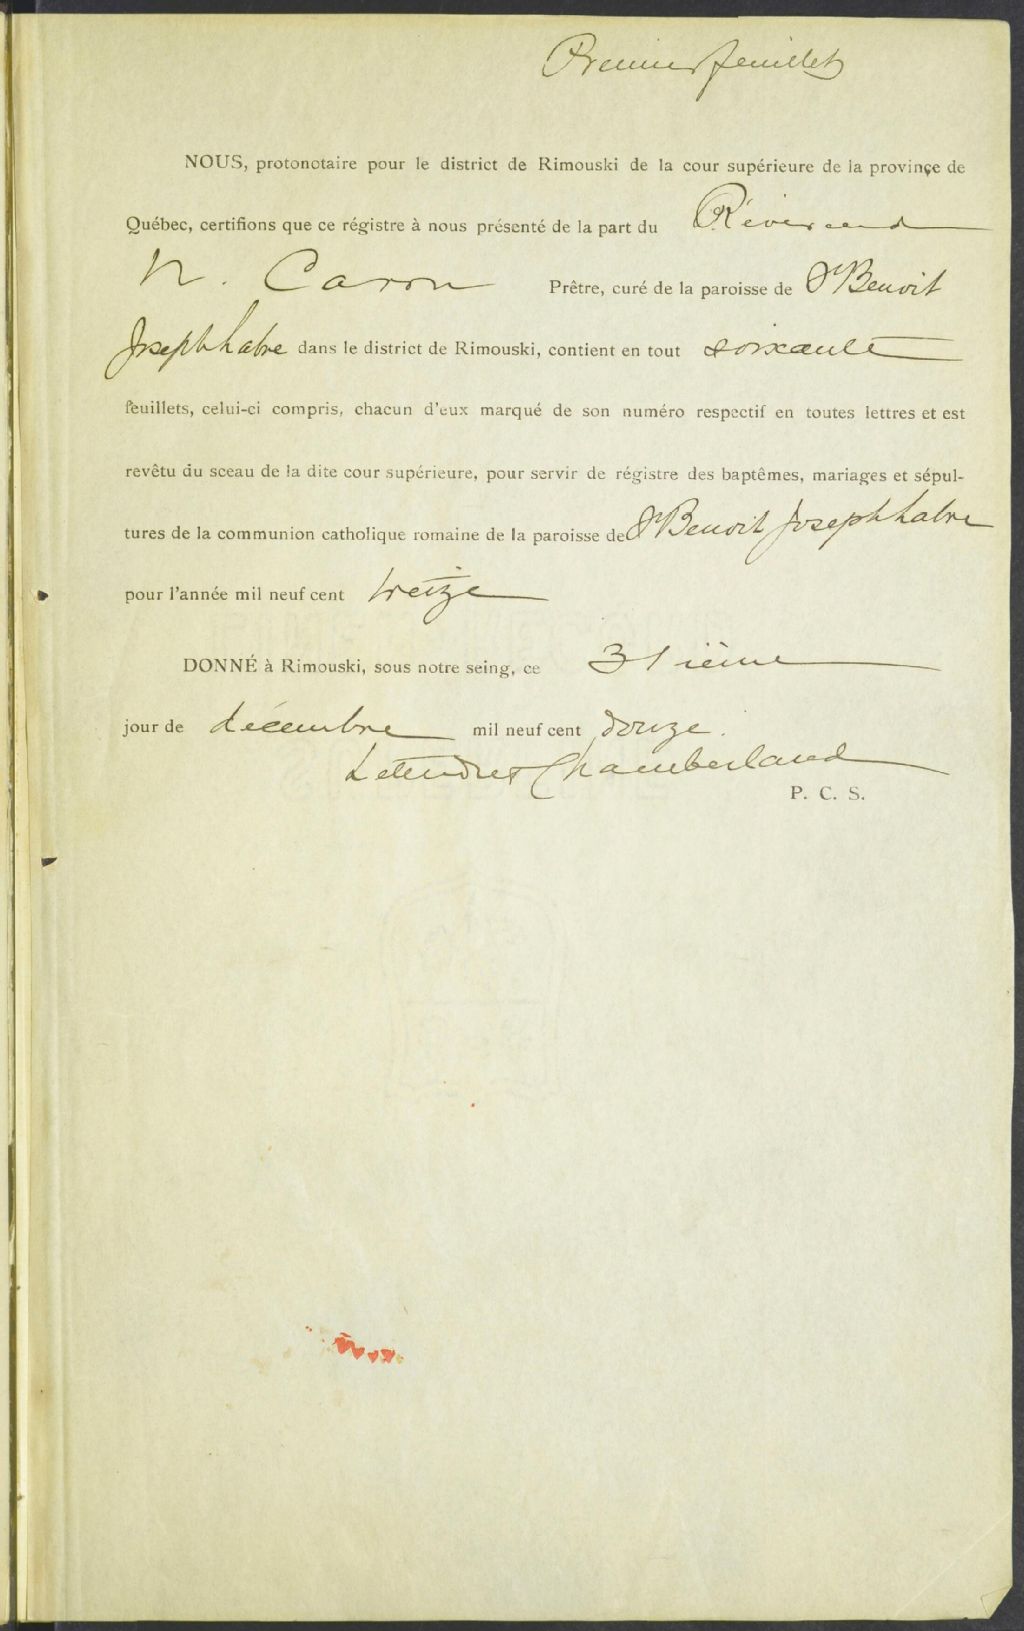 Premier feuillet
NOUS, protonotaire pour le district de Rimouski de la cour supérieure de la province de
Québec, certifions que ce régistre à nous présenté de la part du Révérend
N. Caron Prêtre, curé de la paroisse de St Benoit
Joseph Labre dans le district de Rimouski, contient en tout soixante
feuillets, celui-ci compris, chacun d'eux marqué de son numéro respectif en toutes lettres et est
revêtu du sceau de la dite cour supérieure, pour servir de régistre des baptêmes, mariages et sépul-
tures de la communion catholique romaine de la paroisse de St Benoit Joseph Labre
pour l'année mil neuf cent treize
DONNÉ à Rimouski, sous notre seing, ce 31 ième
jour de décembre mil neuf cent douze.
Letendre & Chamberland
P. C. S.